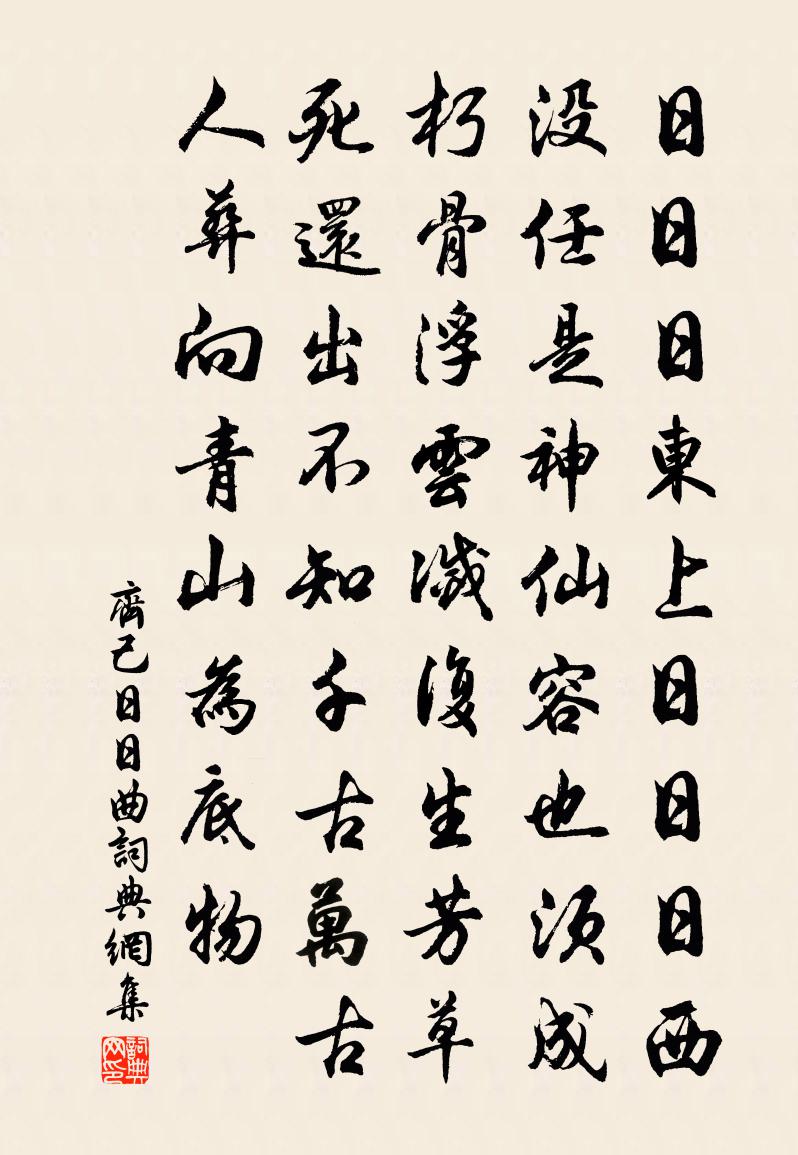 日日日東上日日日西
没任是神仙容也須成
朽骨浮雲滅復生芳草
死還出不知千古萬古
人葬向青山為底物
齊己日日曲詞典網集
詞典网印